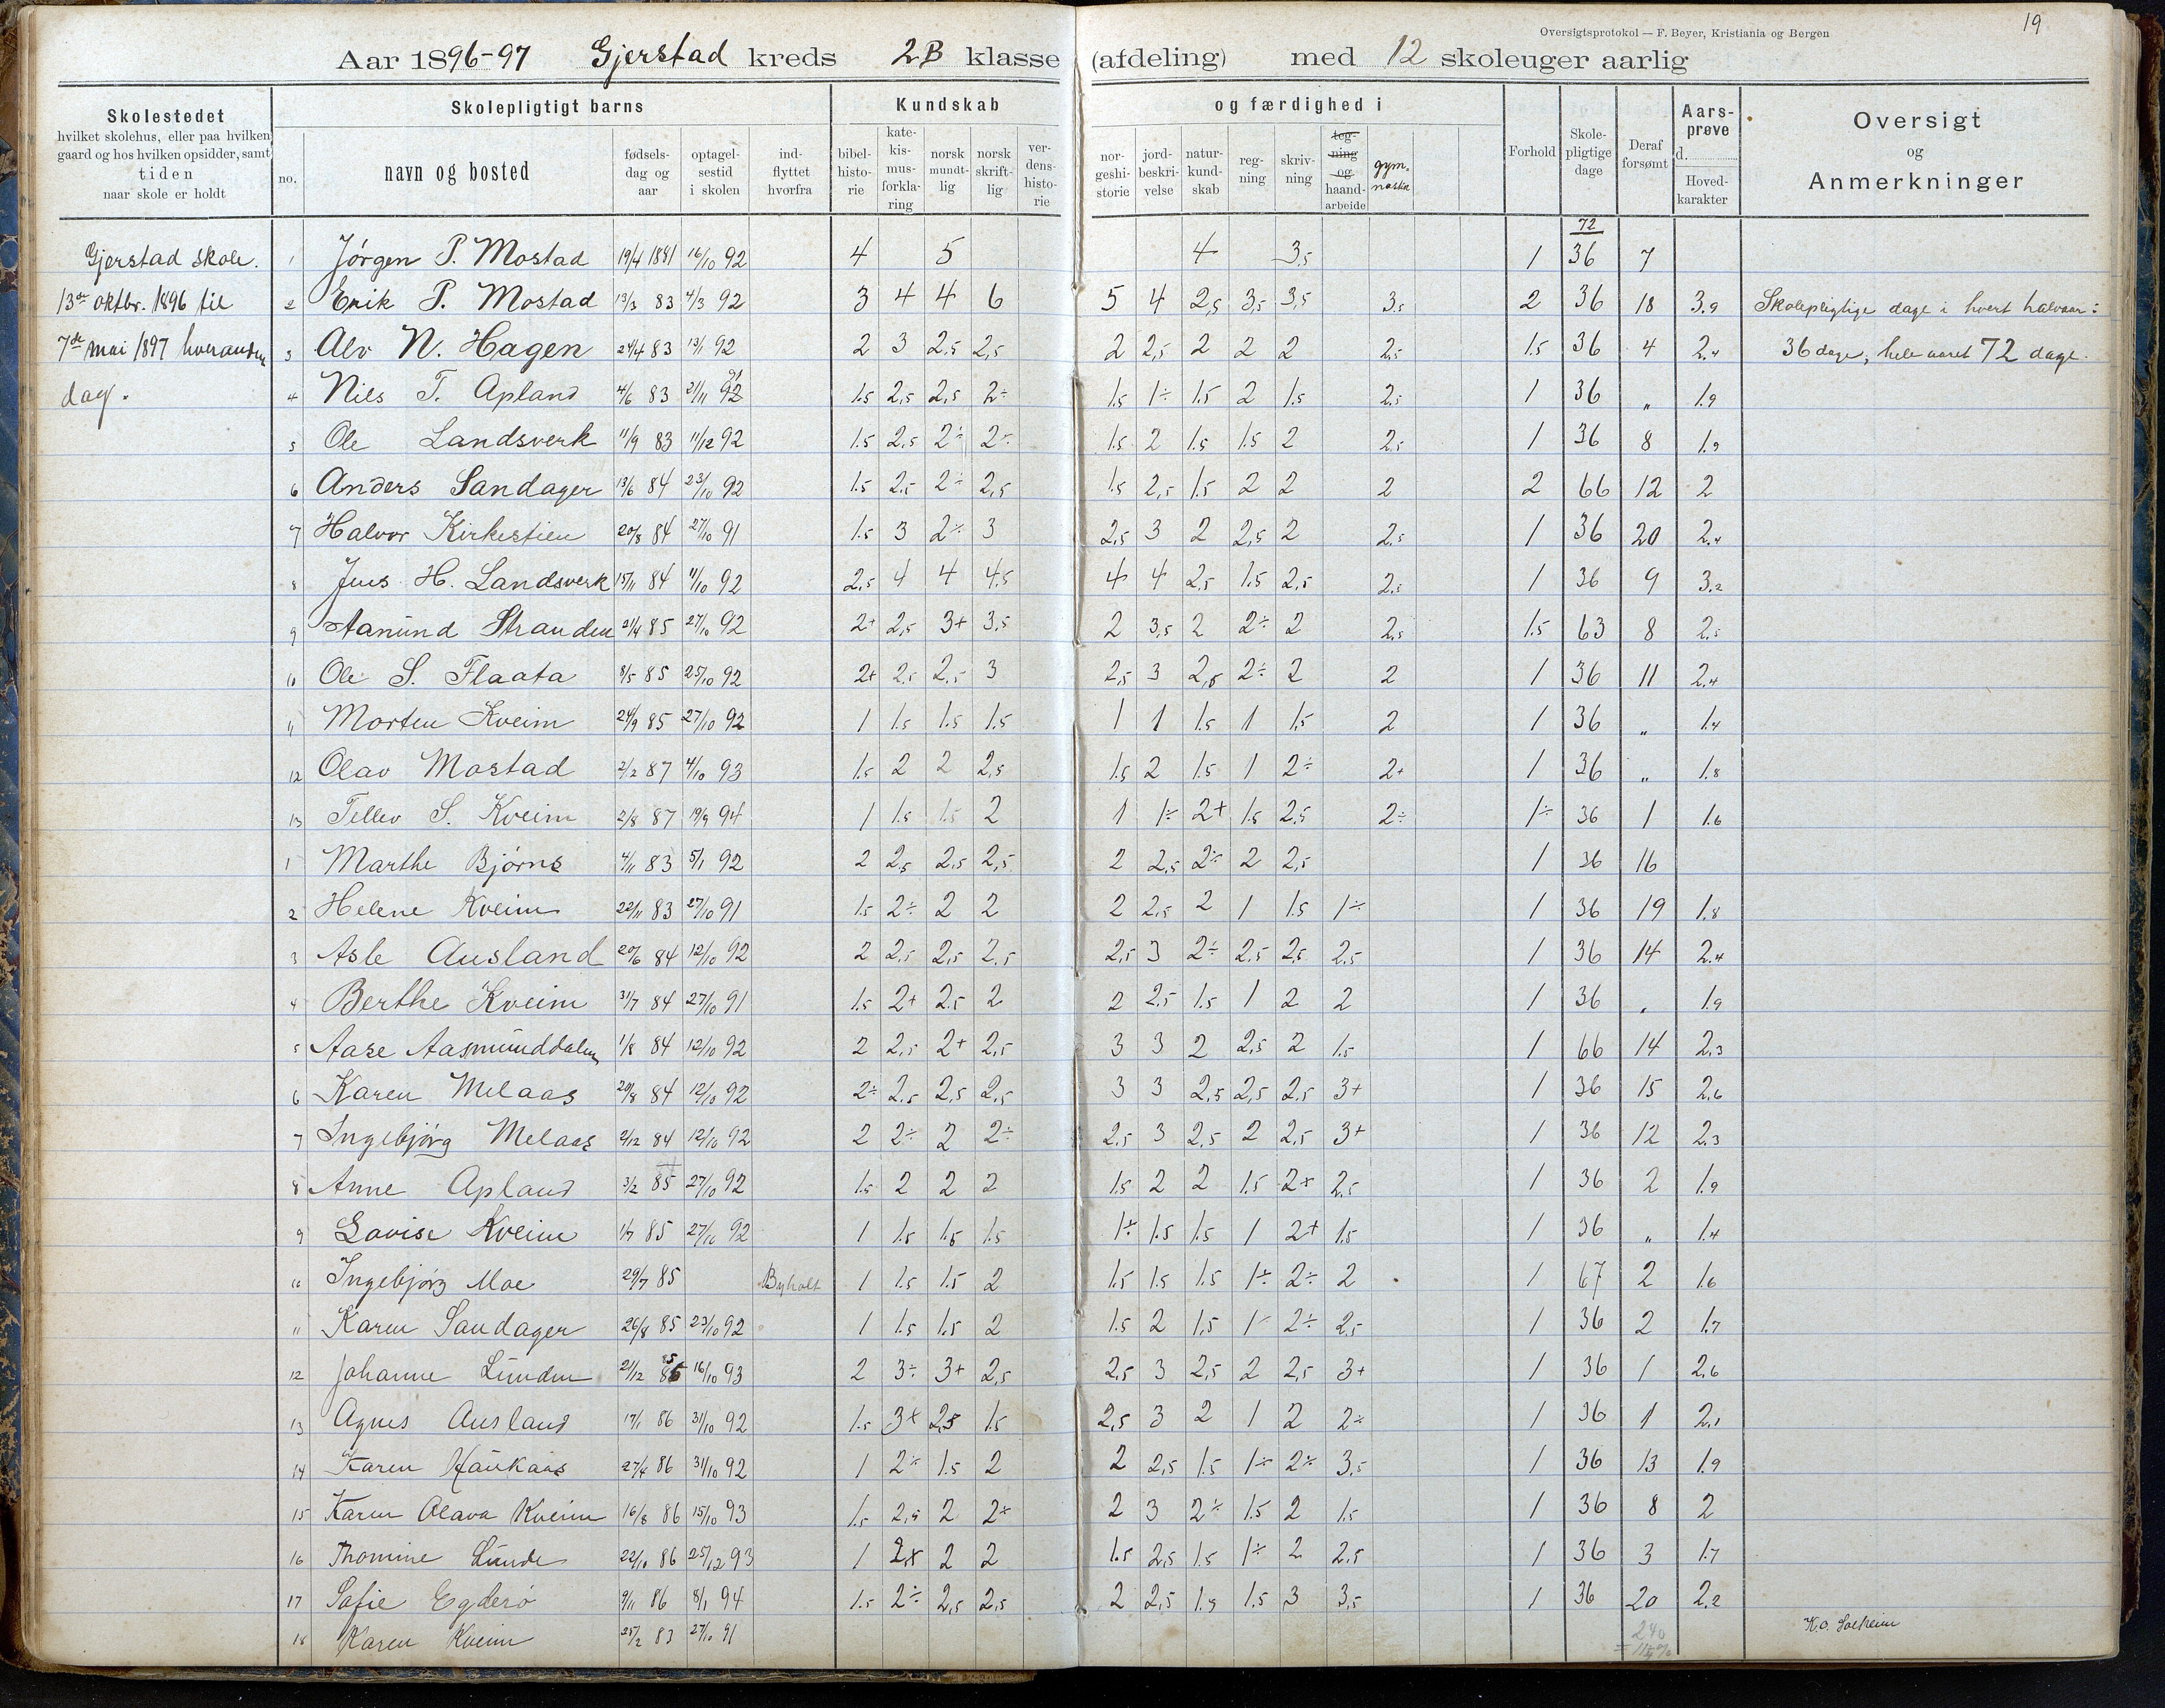 19
Oversigtsprotokol — F. Beyer, Kristiania og Bergen
Aar 1896-97 Gjerstad kreds 2B klasse (afdeling) med 12 skoleuger aarlig
Skolestedet
hvilket skolehus, eller paa hvilken
gaard og hos hvilken opsidder, samt
tiden
naar skole er holdt
Skolepligtigt barns
no. navn og bosted fødsels-dag og aar optagel-sestid i skolen ind-flyttet hvorfra
Kundskab og færdighed i
bibel-histo-rie kate-kis-mus-forkla-ring norsk mundt-lig norsk skrift-lig ver-dens-histo-rie nor-geshi-storie jord-beskri-velse natur-kund-skab reg-ning skriv-ning teg-ning og haand-arbeide gym-nastik
Forhold Skole-pligtige dage Deraf forsømt Aars-prøve d. Hoved-karakter
Oversigt
og
Anmerkninger
72
Gjerstad skole. 1 Jørgen P. Mostad 19/4 1881 16/10 92 4 5 4 3,5 1 36 7
13de oktbr. 1896 til 2 Erik P. Mostad 13/3 83 4/3 92 3 4 4 6 5 4 2,5 3,5 3,5 3,5 2 36 18 3.9 Skolepligtige dage i hvert halvaar:
7de mai 1897 hveranden 3 Alv N. Hagen 24/4 83 13/1 92 2 3 2,5 2,5 2 2,5 2 2 2 2,5 1.5 36 4 2.4 36 dage, hele aaret 72 dage.
dag. 4 Nils T. Apland 4/6 83 21/11 92 91 1.5 2,5 2,5 2÷ 1.5 1÷ 1.5 2 1.5 2,5 1 36 " 1.9
5 Ole Landsverk 11/9 83 11/12 92 1.5 2,5 2÷ 2÷ 1.5 2 1.5 1.5 2 2,5 1 36 8 1.9
6 Anders Sandager 13/6 84 23/10 92 1.5 2,5 2÷ 2,5 1.5 2,5 1.5 2 2 2 2 66 12 2
7 Halvor Kirkestien 20/8 84 27/10 91 1.5 3 2÷ 3 2,5 3 2 2,5 2 2,5 1 36 20 2.4
8 Jens H. Landsverk 15/11 84 11/10 92 2,5 4 4 4,5 4 4 2,5 1.5 2,5 2,5 1 36 9 3.2
9 Aanund Stranden 21/4 85 27/10 92 2+ 2,5 3+ 3,5 2 3,5 2 2÷ 2 2,5 1.5 63 8 2.5
10 Ole S. Flaata 8/5 85 25/10 92 2+ 2,5 2,5 3 2,5 3 2,5 2÷ 2 2 1 36 11 2.4
11 Morten Kveim 24/9 85 27/10 92 1 1.5 1.5 1.5 1 1 1.5 1 1.5 2 1 36 " 1.4
12 Olav Mostad 2/2 87 4/10 93 1.5 2 2 2,5 1.5 2 1.5 1 2÷ 2+ 1 36 " 1.8
13 Tellev S. Kveim 2/8 87 19/9 94 1 1.5 1.5 2 1 1÷ 2+ 1.5 2,5 2÷ 1÷ 36 1 1.6
1 Marthe Bjørns 4/11 83 5/1 92 2 2,5 2,5 2,5 2 2,5 2÷ 2 2,5 1 36 16
2 Helene Kveim 22/11 83 27/10 91 1.5 2÷ 2 2 2 2,5 2 1 1.5 1÷ 1 36 19 1.8
3 Asle Ausland 20/6 84 12/10 92 2 2,5 2,5 2,5 2,5 3 2÷ 2,5 2,5 2,5 1 36 14 2.4
4 Berthe Kveim 31/7 84 27/10 91 1.5 2+ 2,5 2 2 2,5 1.5 1 2 2 1 36 " 1.9
5 Aase Aasmunddalen 1/8 84 12/10 92 2 2,5 2+ 2,5 3 3 2 2,5 2 1.5 1 66 14 2.3
6 Karen Melaas 20/8 84 12/10 92 2÷ 2,5 2,5 2,5 3 3 2,5 2,5 2,5 3+ 1 36 15 2.6
7 Ingebjørg Melaas 2/12 84 12/10 92 2 2÷ 2 2÷ 2,5 3 2,5 2 2,5 3+ 1 36 12 2.3
8 Anne Apland 3/2 85 27/10 92 1.5 2 2 2 1.5 2 2 1.5 2+ 2,5 1 36 2 1.9
9 Lovise Kveim 1/7 85 27/10 92 1 1.5 1.5 1.5 1÷ 1.5 1.5 1 2+ 1.5 1 36 " 1.4
10 Ingebjørg Moe 29/7 85 Byholt 1 1.5 1.5 2 1.5 1.5 1.5 1÷ 2÷ 2 1 67 2 1.6
11 Karen Sandager 26/8 85 23/10 92 1 1.5 1.5 2 1.5 2 1,5 1÷ 2÷ 2,5 1 36 2 1.7
12 Johanne Lunden 21/12 85 16/10 93 2 3÷ 3+ 2,5 2,5 3 2,5 2 2,5 3+ 1 36 1 2.6
13 Agnes Ausland 17/1 86 31/10 92 1.5 3+ 2,5 1.5 2,5 3 2 1 2 2÷ 1 36 1 2.1
14 Karen Haukaas 27/4 86 31/10 92 1 2÷ 1.5 2 2 2,5 1.5 1÷ 2÷ 3,5 1 36 13 1.9
15 Karen Olava Kveim 16/8 86 15/10 93 1.5 2,5 2 2÷ 2 3 2÷ 1.5 2 1.5 1 36 8 2
16 Thomine Lunde 22/10 86 25/12 93 1 2+ 2 2 1.5 2,5 1.5 1÷ 2 2,5 1 36 3 1.7
17 Sofie Egderø 9/11 86 8/1 94 1.5 2÷ 2,5 2,5 2 2,5 1.5 1.5 3 3,5 1 36 20 2.2
18 Karen Kveim 25/2 83 27/10 91 240 K.O. Solheim